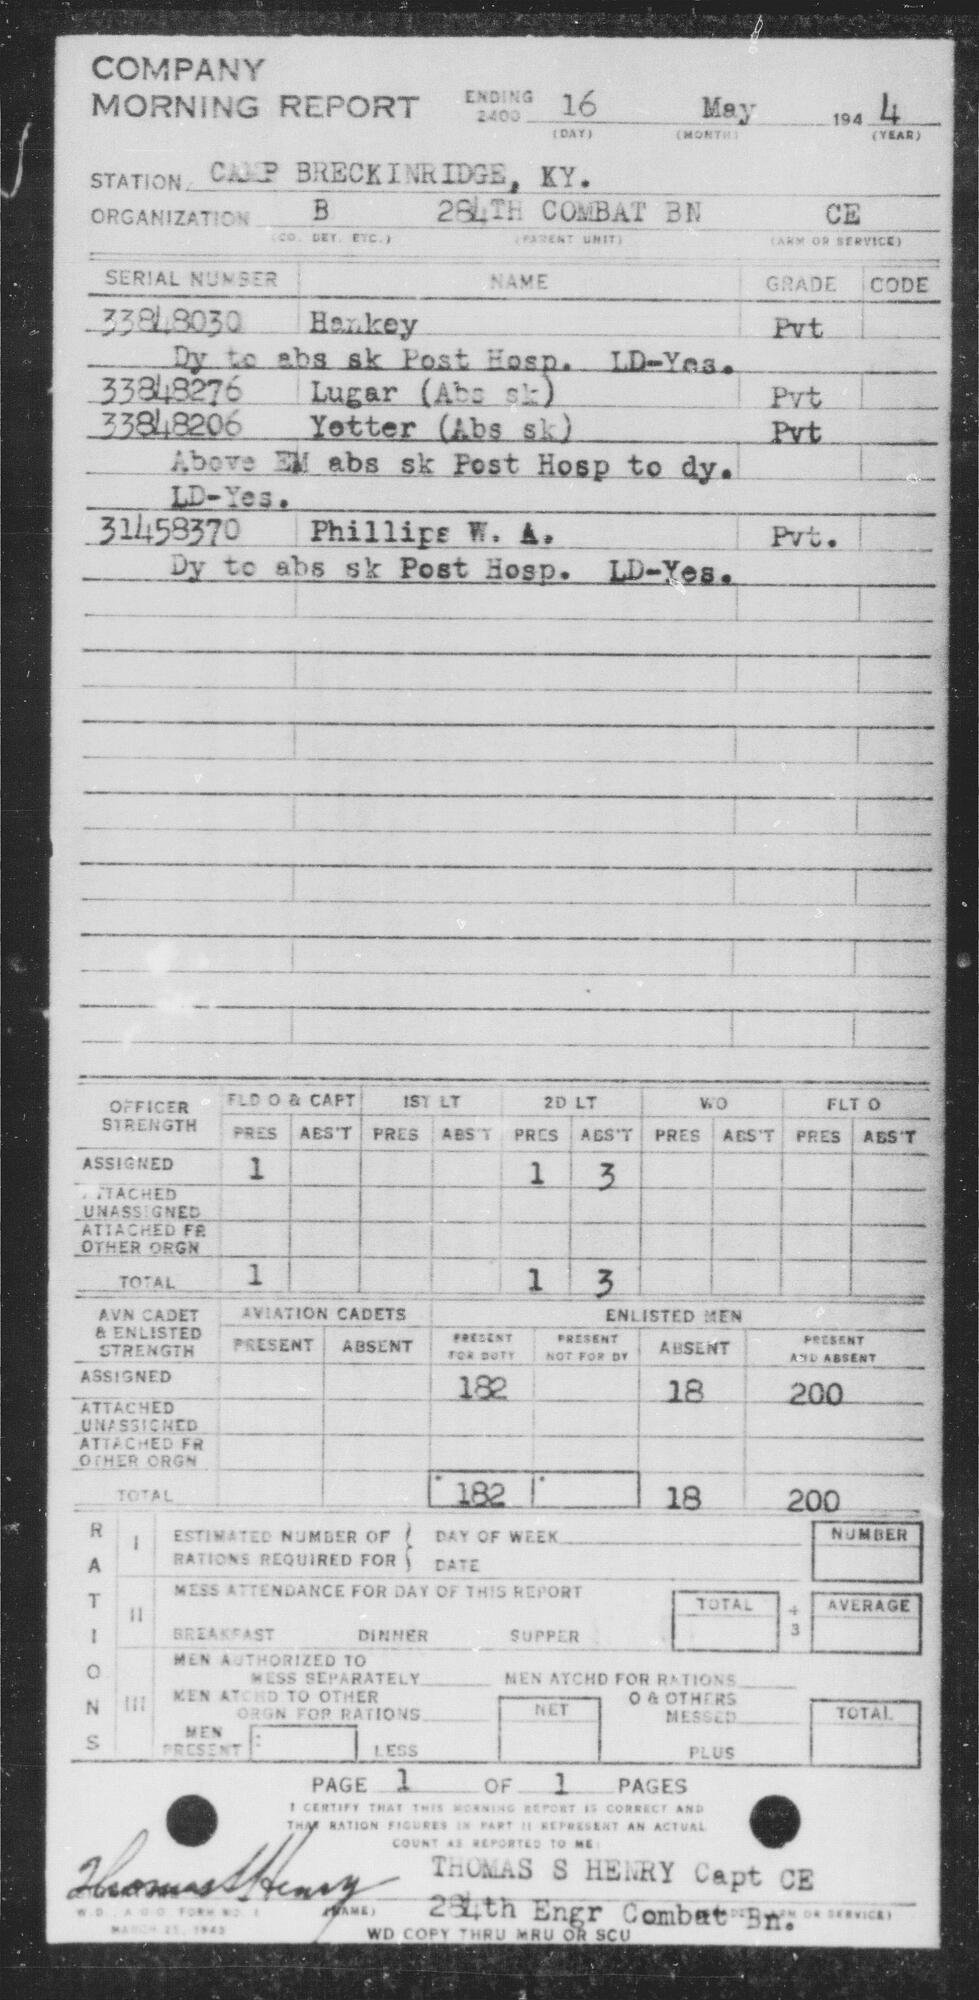 COMPANY
MORNING REPORT ENDING 2400 16 May 194 4
(DAY) (MONTH) (YEAR)
STATION CAMP BRECKINRIDGE, KY.
ORGANIZATION B 284TH COMBAT BN CE
(CO. DET. ETC.) (PARENT UNIT) (ARM OR SERVICE)
SERIAL NUMBER NAME GRADE CODE
33848030 Hankey Pvt
Dy to abs sk Post Hosp. LD-Yes.
33848276 Lugar (Abs sk) Pvt
33848206 Yetter (Abs sk) Pvt
Above EM abs sk Post Hosp to dy.
LD-Yes.
31458370 Phillips W. A. Pvt.
Dy to abs sk Post Hosp. LD-Yes.
OFFICER STRENGTH FLD O & CAPT 1ST LT 2D LT WO FLT O
PRES ABS'T PRES ABS'T PRES ABS'T PRES ABS'T PRES ABS'T
ASSIGNED 1 1 3
ATTACHED
UNASSIGNED
ATTACHED FR
OTHER ORGN
TOTAL 1 1 3
AVN CADET & ENLISTED STRENGTH AVIATION CADETS ENLISTED MEN
PRESENT ABSENT PRESENT FOR DUTY PRESENT NOT FOR DY ABSENT PRESENT AND ABSENT
ASSIGNED 182 18 200
ATTACHED
UNASSIGNED
ATTACHED FR
OTHER ORGN
TOTAL 182 18 200
RATIONS
I ESTIMATED NUMBER OF DAY OF WEEK NUMBER
RATIONS REQUIRED FOR DATE
II MESS ATTENDANCE FOR DAY OF THIS REPORT TOTAL ÷ 3 AVERAGE
BREAKFAST DINNER SUPPER
III MEN AUTHORIZED TO
MESS SEPARATELY MEN ATCHD FOR RATIONS
MEN ATCHD TO OTHER ORGN FOR RATIONS NET O & OTHERS MESSED TOTAL
MEN PRESENT LESS PLUS
PAGE 1 OF 1 PAGES
I CERTIFY THAT THIS MORNING REPORT IS CORRECT AND
THAT RATION FIGURES IN PART II REPRESENT AN ACTUAL
COUNT AS REPORTED TO ME:
Thomas S Henry THOMAS S HENRY Capt CE
284th Engr Combat Bn.
W.D., A.G.O. FORM NO. 1 (NAME) ARM OR SERVICE)
MARCH 25, 1943
WD COPY THRU MRU OR SCU